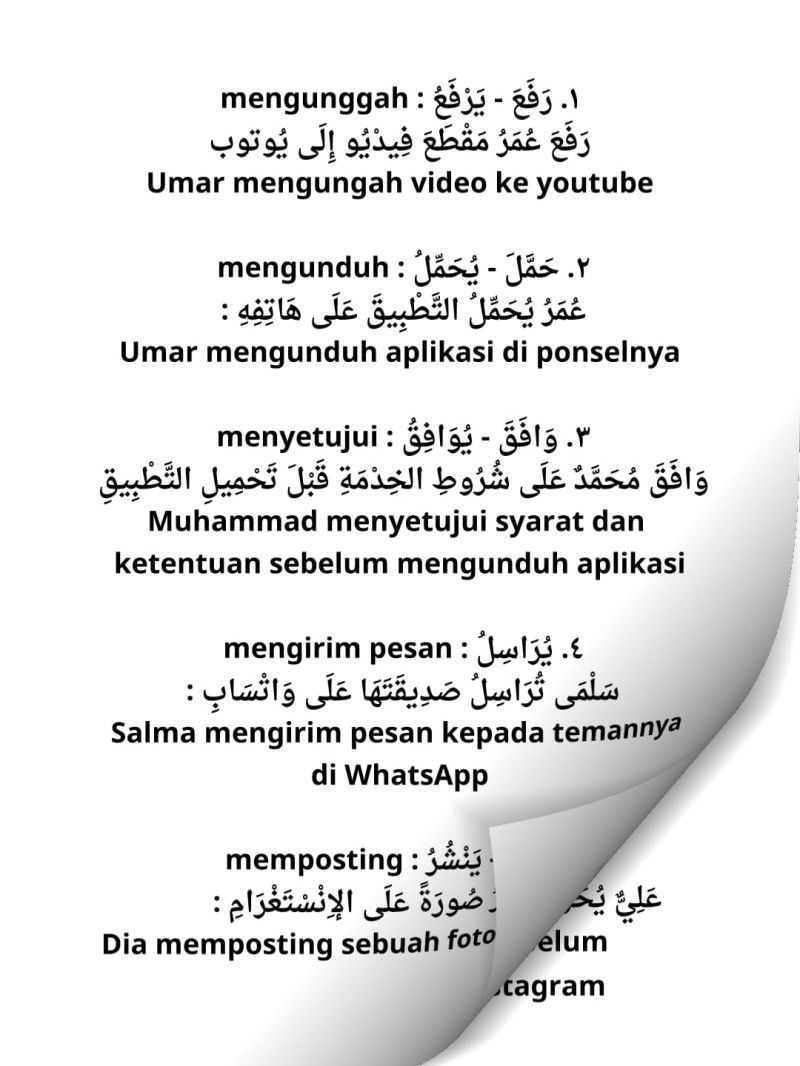 ١. رَفَعَ - يَرْفَعُ : mengunggah
رَفَعَ عُمَرُ مَقْطَعَ فِيدْيُو إِلَى يُوتوب
Umar mengungah video ke youtube
٢. حَمَّلَ - يُحَمِّلُ : mengunduh
عُمَرُ يُحَمِّلُ التَّطْبِيقَ عَلَى هَاتِفِهِ :
Umar mengunduh aplikasi di ponselnya
٣. وَافَقَ - يُوَافِقُ : menyetujui
وَافَقَ مُحَمَّدٌ عَلَى شُرُوطِ الخِدْمَةِ قَبْلَ تَحْمِيلِ التَّطْبِيقِ
Muhammad menyetujui syarat dan
ketentuan sebelum mengunduh aplikasi
٤. يُرَاسِلُ : mengirim pesan
سَلْمَى تُرَاسِلُ صَدِيقَتَهَا عَلَى وَاتْسَابِ :
Salma mengirim pesan kepada temannya
di WhatsApp
- يَنْشُرُ : memposting
عَلِيٌّ صُورَةً عَلَى الإِنْسْتَغْرَامِ :
Dia memposting sebuah foto